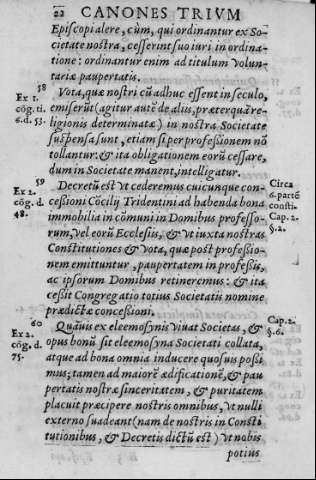 22 CANONES TRIVM
Episcopi alere, cùm, qui ordinantur ex So-
cietate nostra, cesserint suo iuri in ordina-
tione: ordinantur enim ad titulum volun-
tariæ paupertatis.
58
Ex 1.
cōg. ti.
6. d. 53.
Vota, quæ nostri cū adhuc essent in seculo,
emiserūt (agitur autē de aliis, præterquā re-
ligionis determinatæ) in nostra Societate
suspensa sunt, etiam si per professionem nō
tollantur: & ita obligationem eorū cessare,
dum in Societate manent, intelligatur.
59
Ex 2.
cōg. d.
48.
Decretū est vt cederemus cuicunque con-
cessioni Cōcilij Tridentini ad habenda bona
immobilia in cōmuni in Domibus professo-
rum, vel eorū Ecclesiis, & vt iuxta nostras
Constitutiones & vota, quæ post professio-
nem emittuntur, paupertatem in professis,
ac ipsorum Domibus retineremus: & ita
cessit Congregatio totius Societatis nomine
prædictæ concessioni.
Circa
6. partē
consti.
Cap. 2.
§. 2.
60
Ex 2.
cōg. d.
75.
Quāuis ex eleemosynis viuat Societas, &
opus bonū sit eleemosyna Societati collata,
atque ad bona omnia inducere quosuis possi
mus; tamen ad maiorē ædificationē, & pau
pertatis nostræ sinceritatem, & puritatem
placuit præcipere nostris omnibus, vt nulli
externo suadeant (nam de nostris in Consti
tutionibus, & Decretis dictū est) vt nobis
potius
Cap. 2.
§. 6.